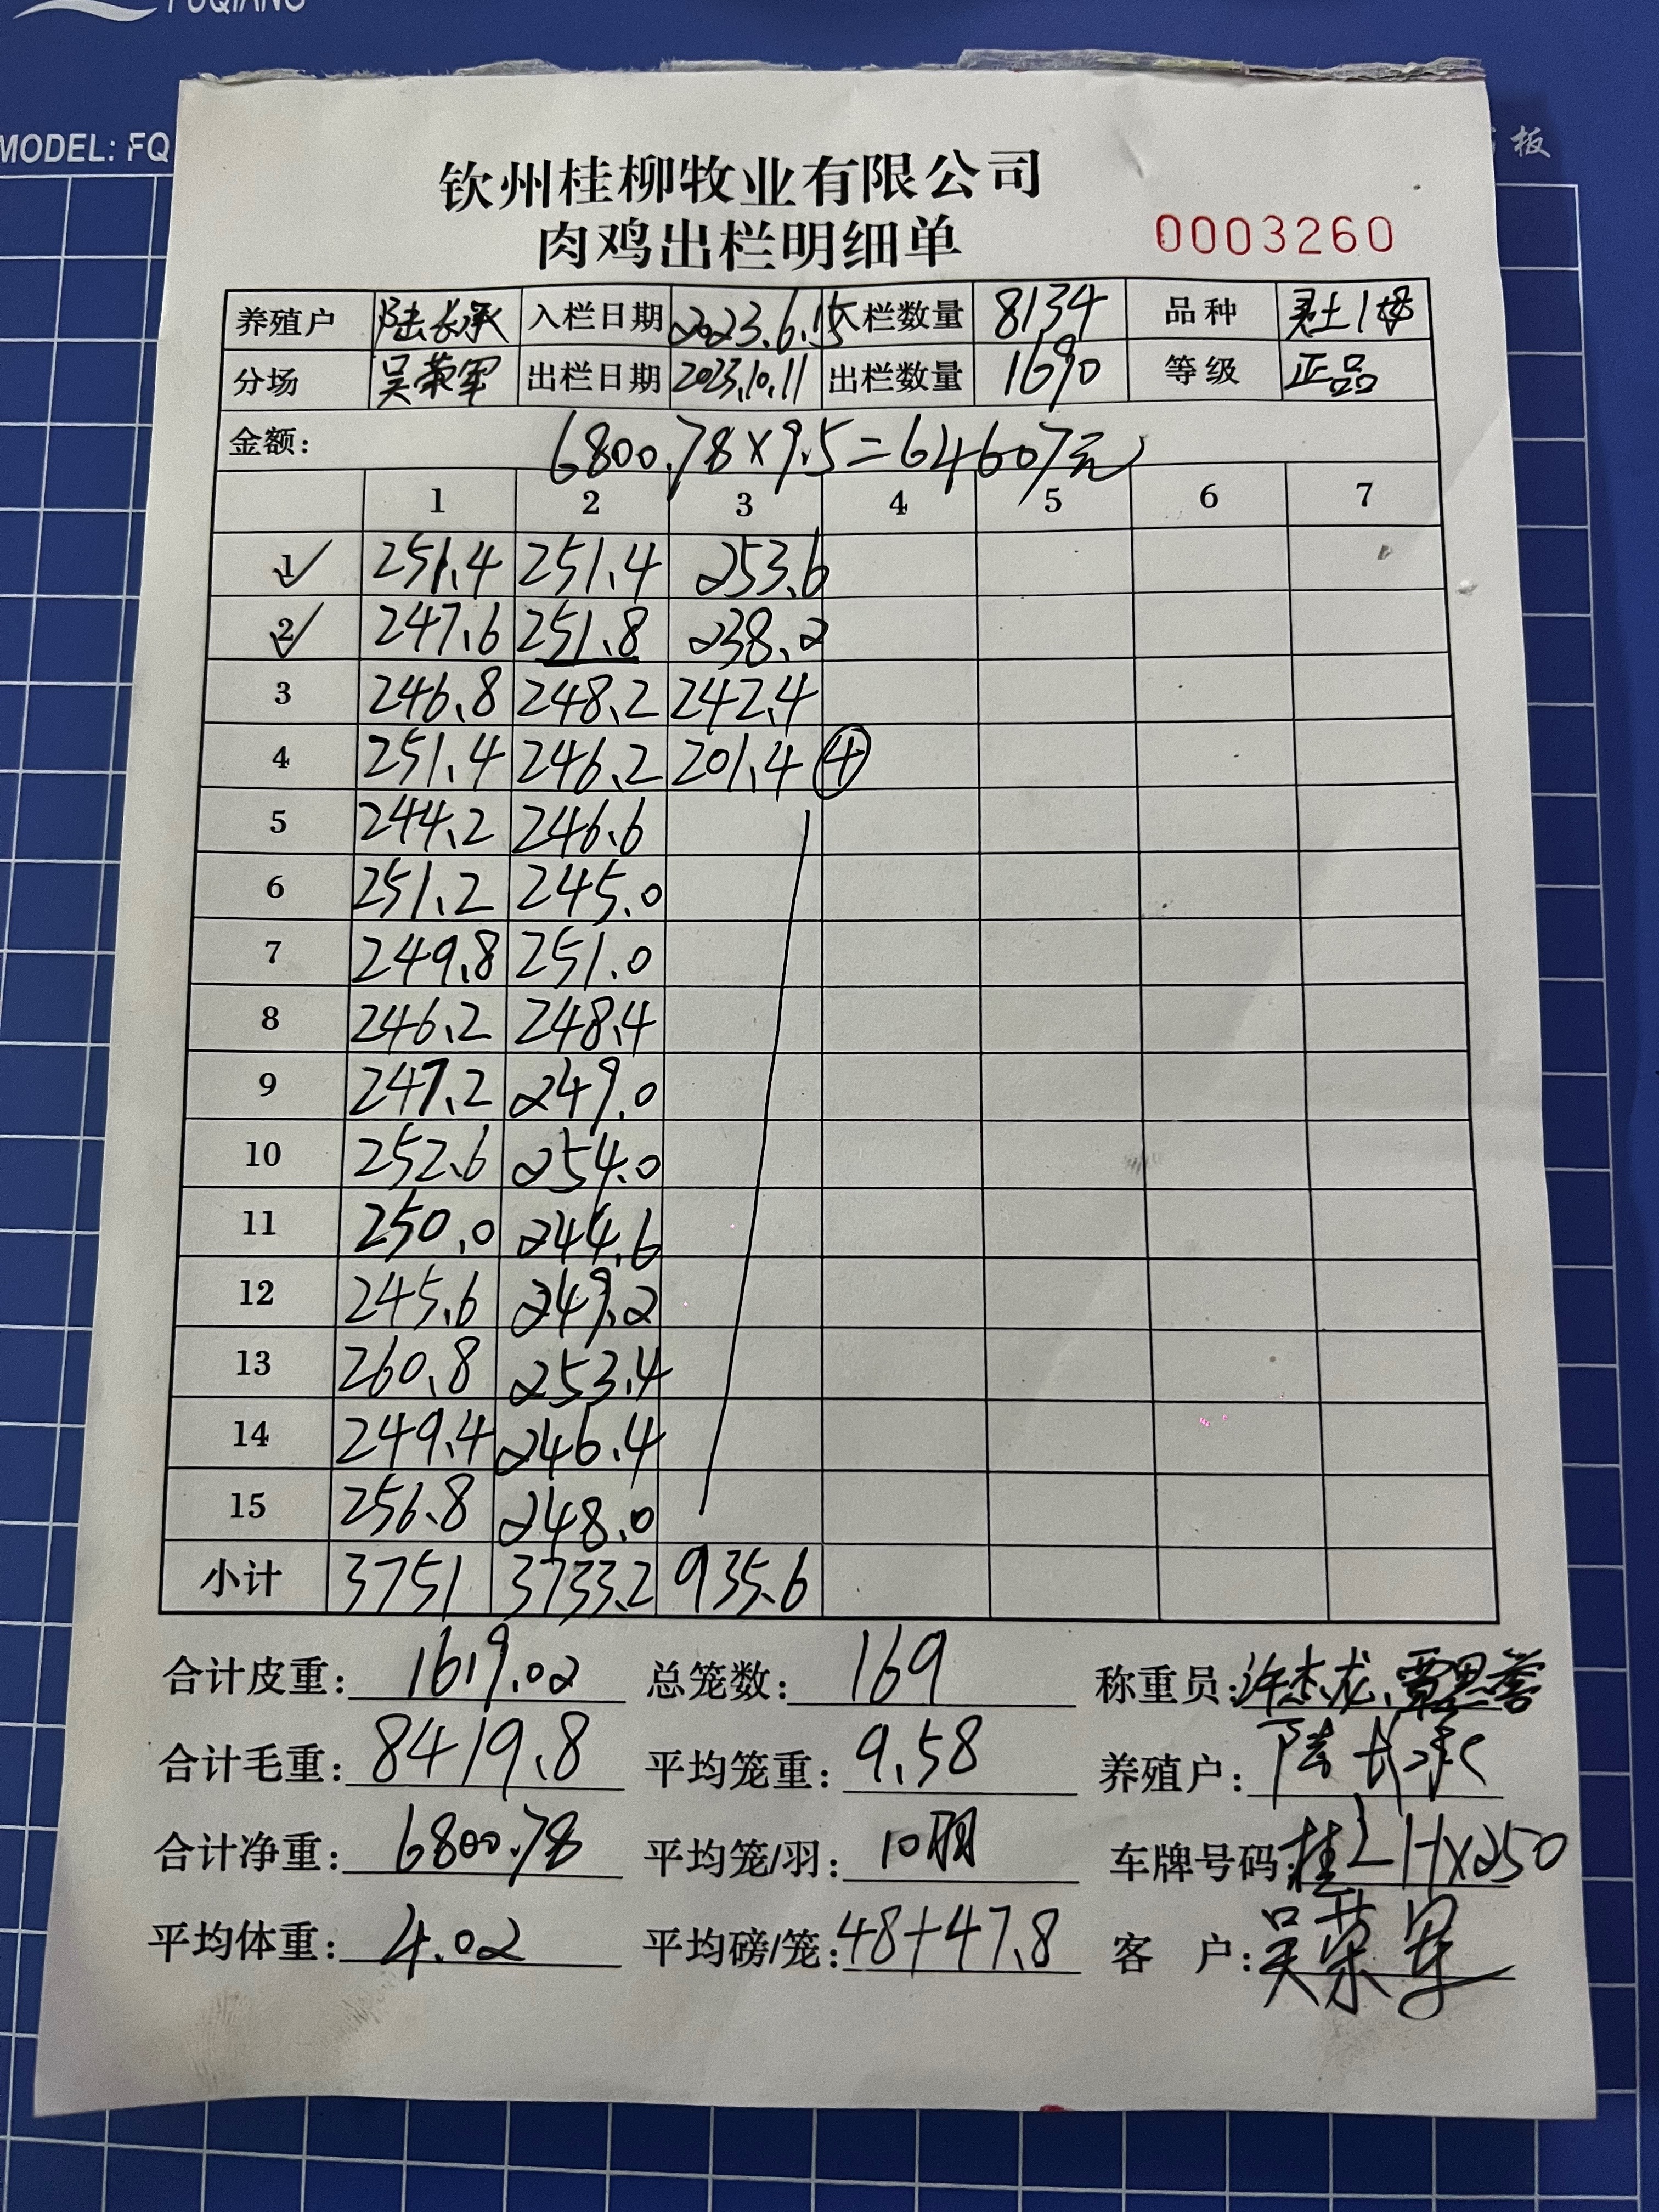 FUQIANG
MODEL: FQ
板
钦州桂柳牧业有限公司
肉鸡出栏明细单 0003260
养殖户 陆长承 入栏日期 2023.6.15 入栏数量 8134 品种 灵土1母
分场 吴荣军 出栏日期 2023.10.11 出栏数量 1690 等级 正品
金额: 6800.78×9.5=64607元
1 2 3 4 5 6 7
1 ✓ 251.4 251.4 253.6
2 ✓ 247.6 251.8 238.2
3 246.8 248.2 242.4
4 251.4 246.2 201.4 ④
5 244.2 246.6
6 251.2 245.0
7 249.8 251.0
8 246.2 248.4
9 247.2 249.0
10 252.6 254.0
11 250.0 244.6
12 245.6 249.2
13 260.8 253.4
14 249.4 246.4
15 256.8 248.0
小计 3751 3733.2 935.6
合计皮重: 1619.02 总笼数: 169 称重员: 许杰龙、
合计毛重: 8419.8 平均笼重: 9.58 养殖户: 陆长承
合计净重: 6800.78 平均笼/羽: 10羽 车牌号码: 桂L HX250
平均体重: 4.02 平均磅/笼: 48+47.8 客 户: 吴荣军